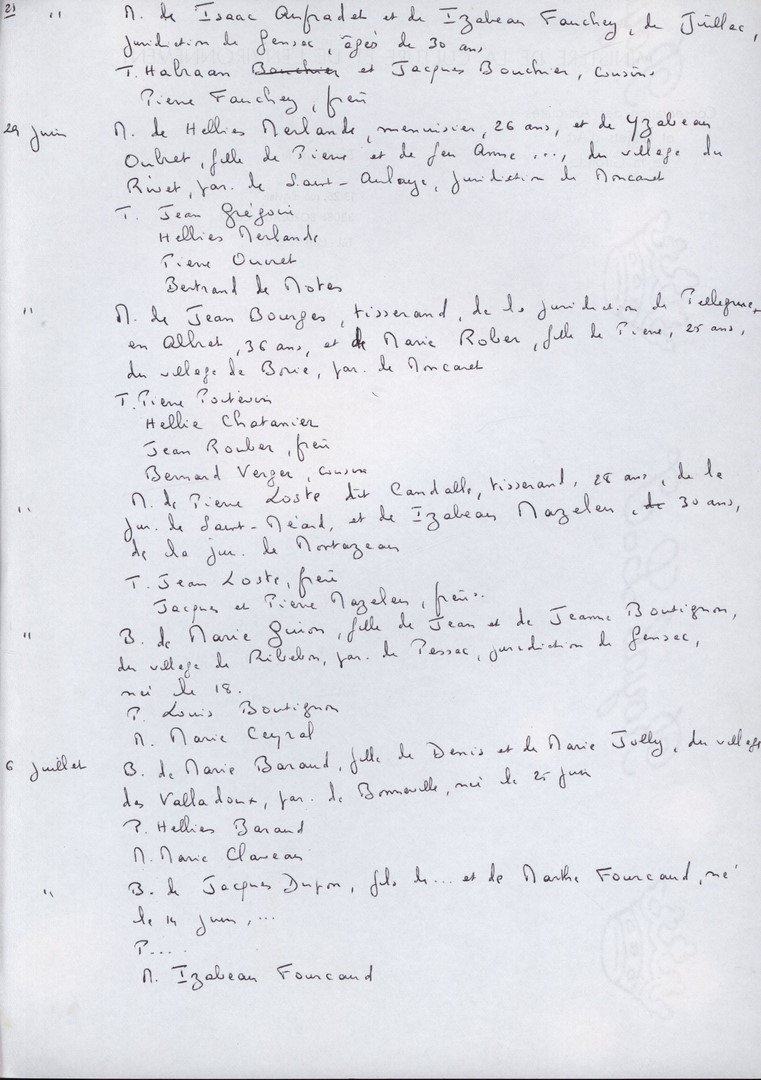 21 " M. de Isaac Aufradet et de Izabeau Fauchey, de Juillac,
juridiction de Gensac, âgés de 30 ans
T. Habraan Bouchier et Jacques Bouchier, cousins
Pierre Fauchey, frère
29 juin M. de Hellies Merlande, menuisier, 26 ans, et de Yzabeau
Oubret, fille de Pierre et de feu Anne ..., du village du
Rivet, par. de Saint-Aulaye, juridiction de Moncaret
T. Jean Grégoire
Hellies Merlande
Pierre Ouvret
Bertrand de Motes
" M. de Jean Bourges, tisserand, de la juridiction de Pellegrue,
en Albret, 36 ans, et de Marie Rober, fille de Pierre, 25 ans,
du village de Borie, par. de Moncaret
T. Pierre Poitevin
Hellie Chatanier
Jean Rouber, frère
Bernard Verger, cousin
" M. de Pierre Loste dit Candalle, tisserand, 28 ans, de la
jur. de Saint-Méard, et de Izabeau Mazeleu, de 30 ans,
de la jur. de Montazeau
T. Jean Loste, frère
Jacques et Pierre Mazeleu, frères.
" B. de Marie Guion, fille de Jean et de Jeanne Boutignon,
du village de Ribebon, par. de Pessac, juridiction de Gensac,
née le 18.
P. Louis Boutignon
M. Marie Ceyral
6 juillet B. de Marie Baraud, fille de Denis et de Marie Jolly, du village
des Valladoux, par. de Bonneville, née le 25 juin
P. Hellies Baraud
M. Marie Claveau
" B. de Jacques Dupon, fils de ... et de Marthe Fourcaud, né
le 14 juin, ...
P. ...
M. Izabeau Fourcaud